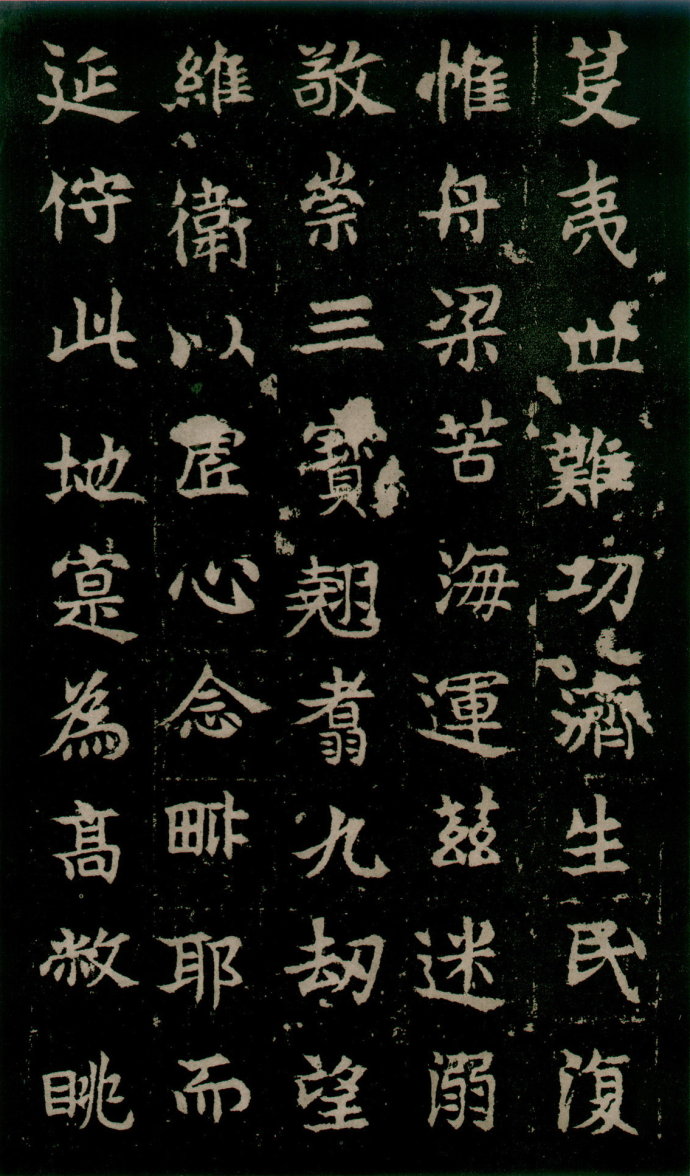 芟夷世難功濟生民復
惟舟梁苦海運茲迷溺
敬崇三寶翹翥九劫望
維衛以虔心念毗耶而
延佇此地寔為高敞眺